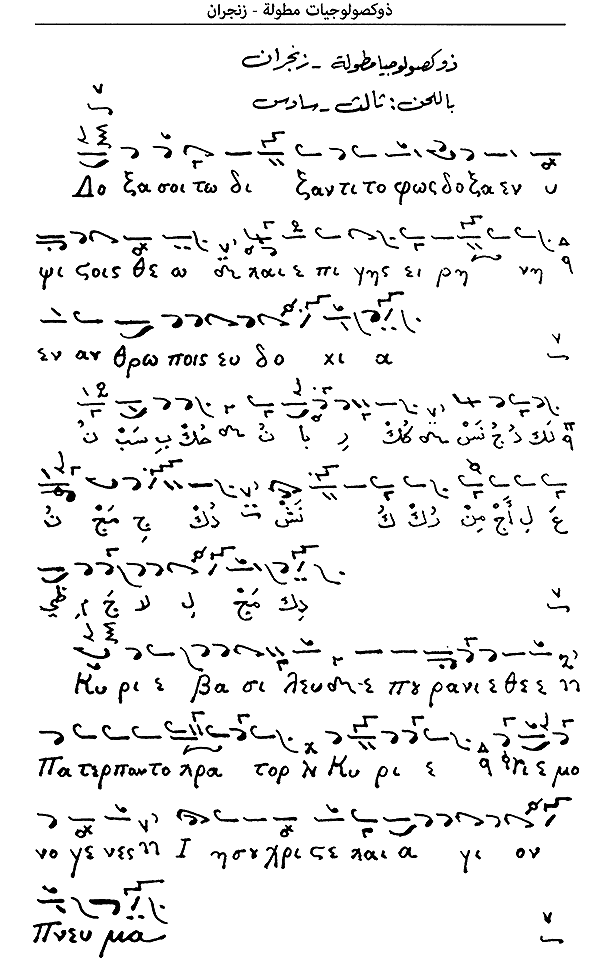 ذوكصولوجيات مطولة - زنجران
ذوكصولوجيا مطولة - زنجران
باللحن: ثالث - سادس
Δο ξα σοι τω δι ξαν τι το φως δο ξα εν υ
ψι ςοις θε ω ϗ και ε πι γης ει ρη νη
εν αν θρω ποις ευ δο κι α
نُ سَبِّ بِ حُكْ نُ بَا رِ كُكْ نَسْ جُ دُ لَكَ
نُ مَجْ جِ دُكْ نَشْ كُ رُكْ مِنْ أَجْ لِ عَ
ظي مِ جَ لا لِ مَجْ دِكَ
Κυ ρι ε βα σι λευ ε που ρα νι ε θε ε
Πα τερ παν το κρα τορ Κυ ρι ε Υι ε μο
νο γε νες Ι η σου χρι ςε και α γι ον
Πνευ μα